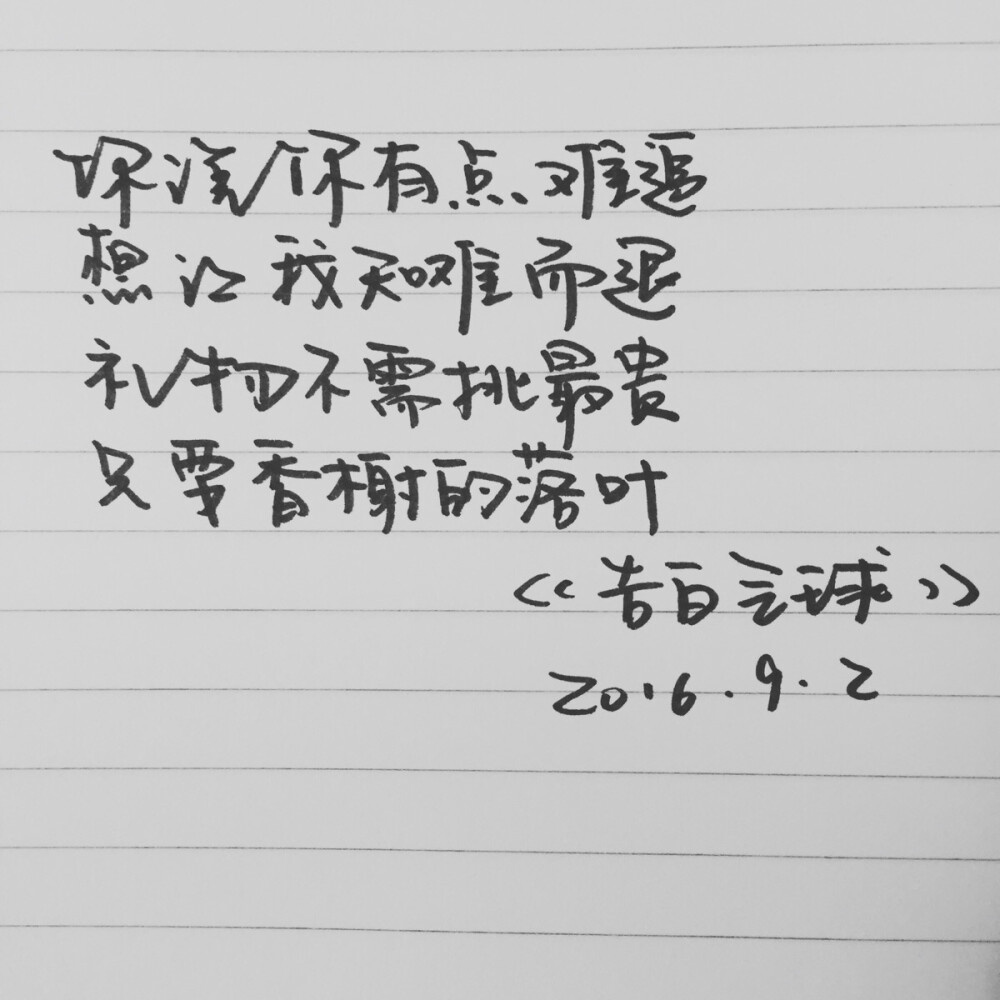 你说你有点难追
想让我知难而退
礼物不需挑最贵
只要香榭的落叶
《告白气球》
2016.9.2